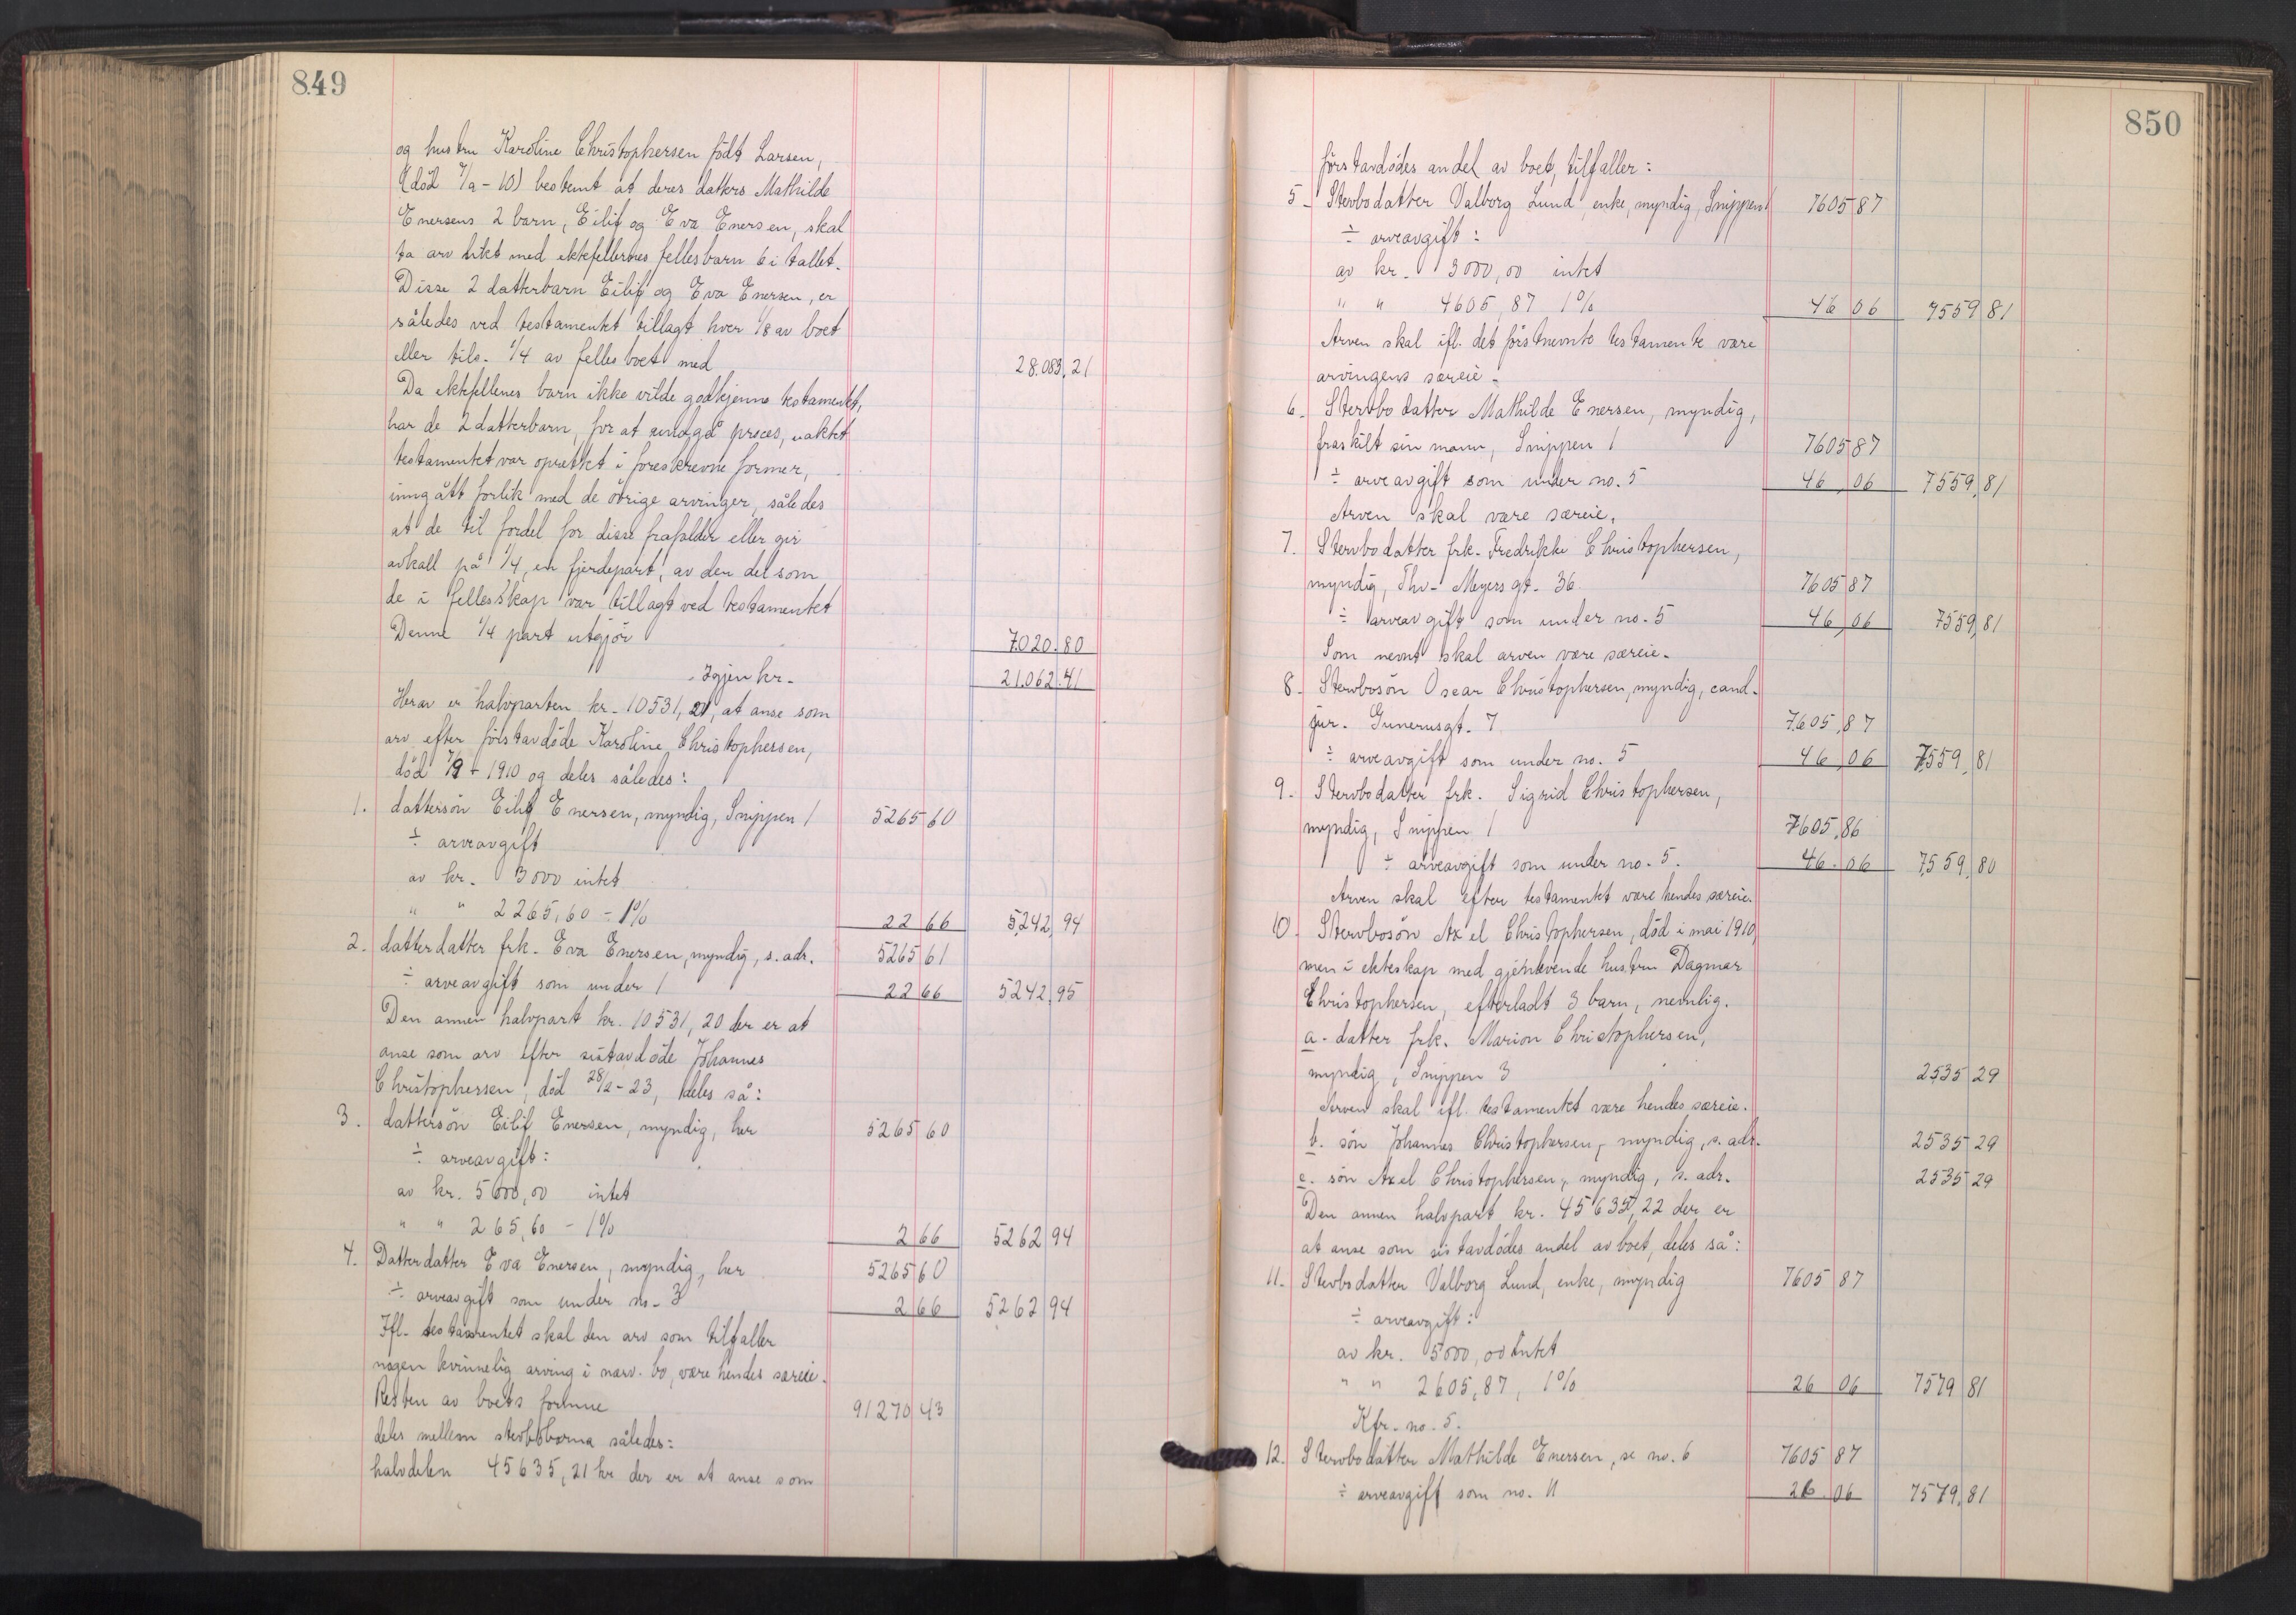 849
og hustru Karoline Christophersen födt Larsen,
(död 7/9 - 10) bestemt at deres datters Mathilde
Enersens 2 barn, Eilif og Eva Enersen, skal
ta arv likt med ektefellernes fellesbarn 6 i tallet.
Disse 2 datterbarn Eilif og Eva Enersen, er
således ved testamentet tillagt hver 1/8 av boet
eller tils. 1/4 av fellesboet med 28.083,21
Da ektefellenes barn ikke vilde godkjenne testamentet,
har de 2 datterbarn, for at undgå proces, uaktet
testamentet var oprettet i foreskrevne former,
inngått forlik med de övrige arvinger, således
at de til fordel for disse frafalder eller gir
avkall på 1/4, en fjerdepart, av den del som
de i fellesskap var tillagt ved testamentet
Denne 1/4 part utgjör 7.020.80
Igjen kr. 21.062.41
Herav er halvparten kr. 10531,21, at anse som
arv efter förstavdöde Karoline Christophersen,
död 7/9 - 1910 og deles således:
1. dattersön Eilif Enersen, myndig, Snippen 1 5265 60
÷ arveavgift
av kr. 3000 intet
" " 2265,60 - 1% 22 66 5,242,94
2. datterdatter frk. Eva Enersen, myndig, s. adr. 5265 61
÷ arveavgift som under 1 22 66 5242,95
Den annen halvpart kr. 10531,20 der er at
anse som arv efter sistavdöde Johannes
Christophersen, död 28/2 - 23, deles så:
3. dattersön Eilif Enersen, myndig, her 5265 60
÷ arveavgift:
av kr. 5000,00 intet
" " 265,60 - 1% 2 66 5262 94
4. Datterdatter Eva Enersen, myndig, her 5265 60
÷ arveavgift som under no. 3 2 66 5262 94
Ifl. testamentet skal den arv som tilfaller
nogen kvinnelig arving i nærv. bo, være hendes særeie.
Resten av boets formue 91270 43
deles mellem stervbobarna således:
halvdelen 45635,21 kr der er at anse som
850
förstavdödes andel av boet, tilfaller:
5. Stervbodatter Valborg Lund, enke, myndig, Snippen 1 7605 87
÷ arveavgift:
av kr. 3000,00 intet
" " 4605,87 1% 46 06 7559 81
Arven skal ifl. det förstnevnte testamente være
arvingens særeie.
6. Stervbodatter Mathilde Enersen, myndig,
fraskilt sin mann, Snippen 1 7605 87
÷ arveavgift som under no. 5 46,06 7559,81
Arven skal være særeie.
7. Stervbodatter frk. Fredrikke Christophersen,
myndig, Thv. Meyers gt. 36 7605 87
÷ arveavgift som under no. 5 46,06 7559,81
Som nevnt skal arven være særeie.
8. Stervbosön Oscar Christophersen, myndig, cand.
jur. Gunerusgt. 7 7.605,87
÷ arveavgift som under no. 5 46,06 7,559,81
9. Stervbodatter frk. Sigrid Christophersen,
myndig, Snippen 1 7605,86
÷ arveavgift som under no. 5. 46.06 7,559,80
Arven skal efter testamentet være hendes særeie.
10. Stervbosön Axel Christophersen, död i mai 1910,
men i ekteskap med gjenlevende hustru Dagmar
Christophersen, efterladt 3 barn, nemlig.
a. datter frk. Marion Christophersen,
myndig, Snippen 3 2535 29
Arven skal ifl. testamentet være hendes særeie.
b. sön Johannes Christophersen, myndig, s. adr. 2535 29
c. sön Axel Christophersen, myndig, s. adr. 2535 29
Den annen halvpart kr. 45635,22 der er
at anse som sistavdödes andel av boet, deles så:
11. Stervbodatter Valborg Lund, enke, myndig 7605 87
÷ arveavgift:
av kr. 5000,00 intet
" " 2605,87, 1% 26 06 7579 81
Kfr. no. 5.
12. Stervbodatter Mathilde Enersen, se no. 6 7605 87
÷ arveavgift som no. 11 26.06 7579,81